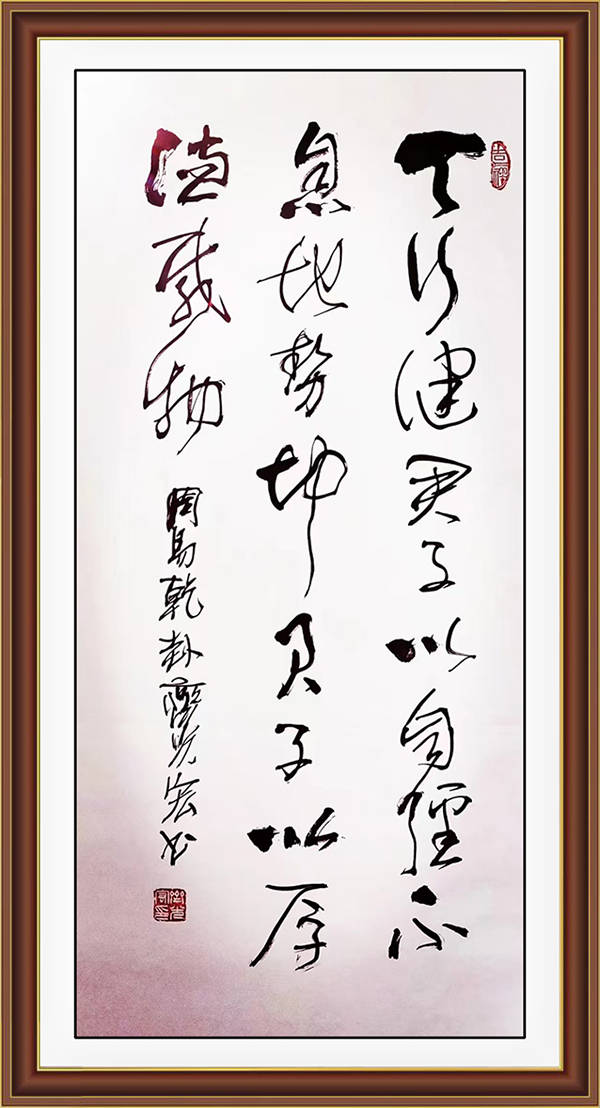 吉祥
天行健君子以自强不
息地势坤君子以厚
德载物
周易乾卦 光宏书